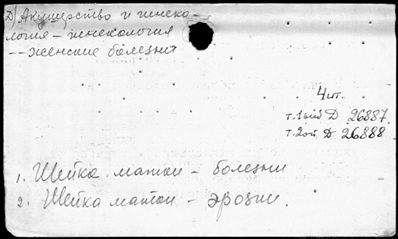 Д) Акушерство и гинеко-
логия - гинекология
-- женские болезни
4 шт.
т. 1ый Д 26887.
т. 2ой Д 26888
1. Шейка матки - болезни
2. Шейка матки - эрозии.